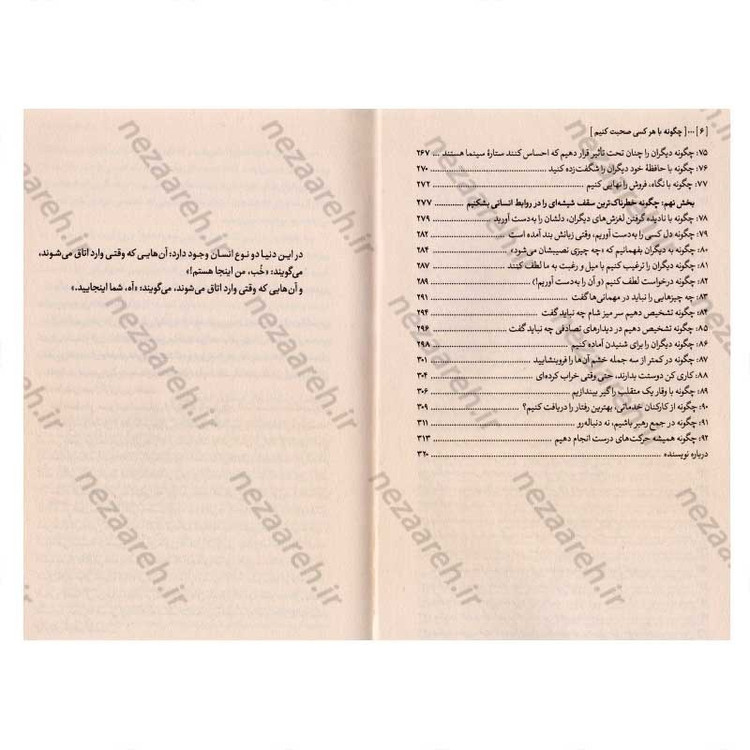 [ ۶ ] ... [ چگونه با هر کسی صحبت کنیم ]
۷۵: چگونه دیگران را چنان تحت تأثیر قرار دهیم که احساس کنند ستارهٔ سینما هستند ... ۲۶۷
۷۶: چگونه با حافظهٔ خود دیگران را شگفت‌زده کنید ... ۲۷۰
۷۷: چگونه با نگاه، فروش را نهایی کنیم ... ۲۷۲
بخش نهم: چگونه خطرناک‌ترین سقف شیشه‌ای را در روابط انسانی بشکنیم ... ۲۷۷
۷۸: چگونه با نادیده گرفتن لغزش‌های دیگران، دلشان را به‌دست آورید ... ۲۷۹
۷۹: چگونه دل کسی را به‌دست آوریم، وقتی زبانش بند آمده است ... ۲۸۲
۸۰: چگونه به دیگران بفهمانیم که «چه چیزی نصیبشان می‌شود» ... ۲۸۴
۸۱: چگونه دیگران را ترغیب کنیم با میل و رغبت به ما لطف کنند ... ۲۸۷
۸۲: چگونه درخواست لطف کنیم (و آن را به‌دست آوریم!) ... ۲۸۹
۸۳: چه چیزهایی را نباید در مهمانی‌ها گفت ... ۲۹۱
۸۴: چگونه تشخیص دهیم سر میز شام چه نباید گفت ... ۲۹۴
۸۵: چگونه تشخیص دهیم در دیدارهای تصادفی چه نباید گفت ... ۲۹۶
۸۶: چگونه دیگران را برای شنیدن آماده کنیم ... ۲۹۸
۸۷: چگونه در کمتر از سه جمله خشم آن‌ها را فروبنشایید ... ۳۰۱
۸۸: کاری کن دوستت بدارند، حتی وقتی خراب کرده‌ای ... ۳۰۴
۸۹: چگونه با وقار یک متقلب را گیر بیندازیم ... ۳۰۶
۹۰: چگونه از کارکنان خدماتی، بهترین رفتار را دریافت کنیم؟ ... ۳۰۹
۹۱: چگونه در جمع رهبر باشیم، نه دنباله‌رو ... ۳۱۱
۹۲: چگونه همیشه حرکت‌های درست انجام دهیم ... ۳۱۳
درباره نویسنده ... ۳۲۰
در این دنیا دو نوع انسان وجود دارد: آن‌هایی که وقتی وارد اتاق می‌شوند،
می‌گویند: «خُب، من اینجا هستم!»
و آن‌هایی که وقتی وارد اتاق می‌شوند، می‌گویند: «آه، شما اینجایید.»
nezaareh.ir
nezaareh.ir
nezaareh.ir
nezaareh.ir
nezaareh.ir
nezaareh.ir
nezaareh.ir
nezaareh.ir
nezaareh.ir